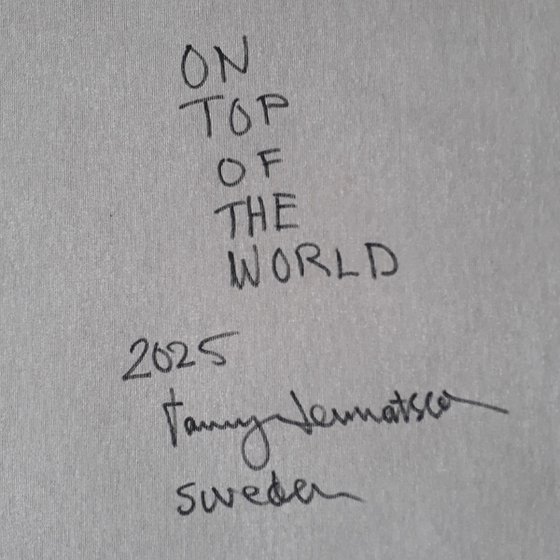 ON
TOP
OF
THE
WORLD
2025
Tanny
Sweden